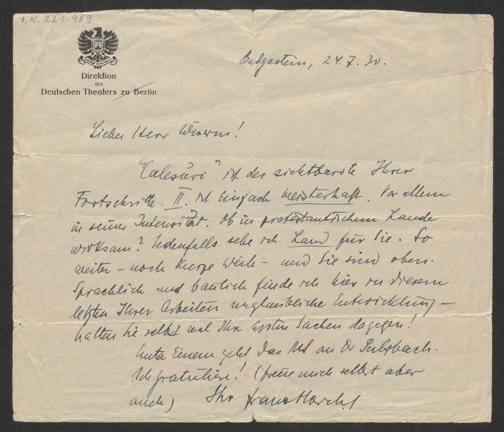 I.N. 221.989
Direktion
des
Deutschen Theaters zu Berlin
Badgastein, 24.7.30.
Lieber Herr !
"Calesüri" ist der sichtbarste Ihrer
Fortschritte. II. ist einfach meisterhaft. Vor allem
in seiner Intensität. Ob in protestantischem Lande
wirksam? Jedenfalls sehe ich Land für Sie. So
weiter – noch kurze Weile – und Sie sind oben.
Sprachlich und baulich finde ich hier in diesem
letzten Ihrer Arbeiten unglaubliche Entwicklung –
halten Sie selbst mal Ihre ersten Sachen dagegen!
Unter Einem geht das MS an Dr Sulzbach.
Ich gratuliere! (freue mich selbst aber
auch) Ihr Franz Horch